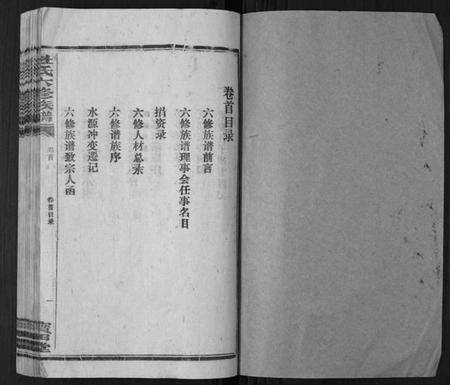 卷首目录
六修族谱前言
六修族谱理事会任事名目
捐资录
六修人材总录
六修谱族序
水源冲变迁记
六修族谱致宗人函
氏六修族谱
卷首
卷首目录
一
堂